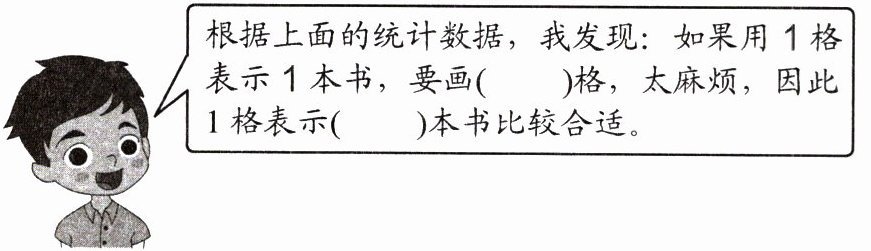 根据上面的统计数据，我发现：如果用 1 格
表示 1 本书，要画(　　)格，太麻烦，因此
1 格表示(　　)本书比较合适。